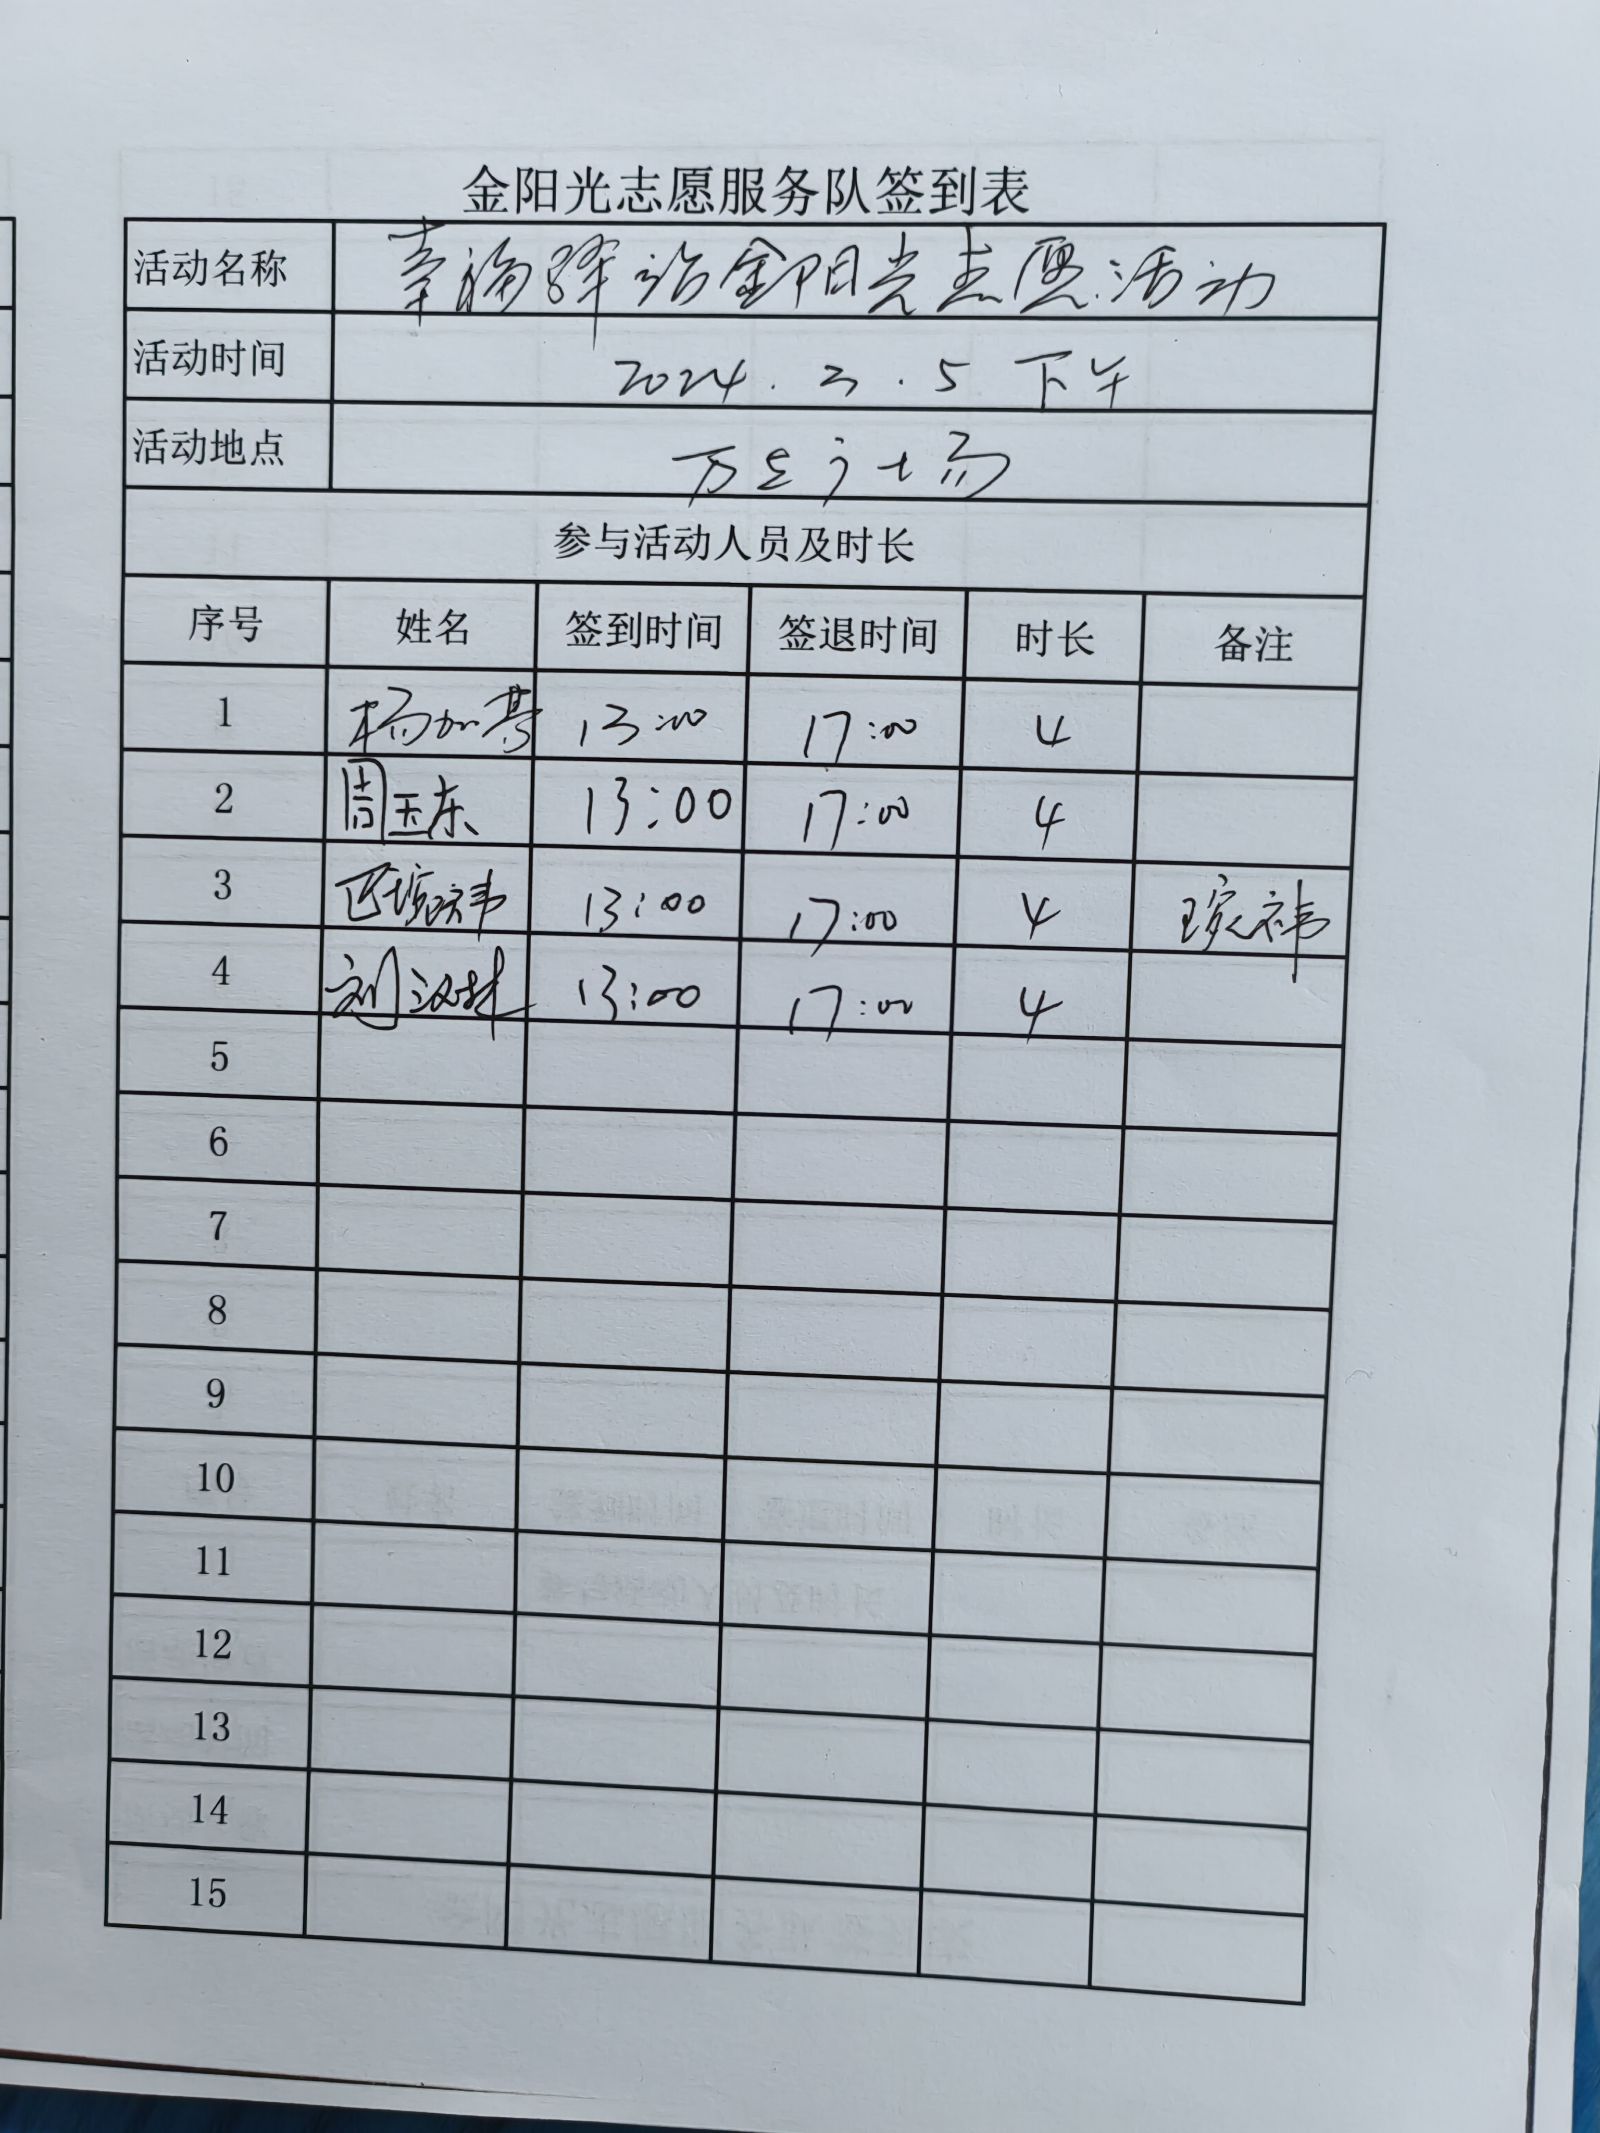 金阳光志愿服务队签到表
活动名称 幸福驿站金阳光志愿活动
活动时间 2024.2.5 下午
活动地点 万达广场
参与活动人员及时长
序号 姓名 签到时间 签退时间 时长 备注
1 杨加 13:00 17:00 4
2 周玉东 13:00 17:00 4
3 巴琬祎 13:00 17:00 4 琬祎
4 刘汉林 13:00 17:00 4
5
6
7
8
9
10
11
12
13
14
15